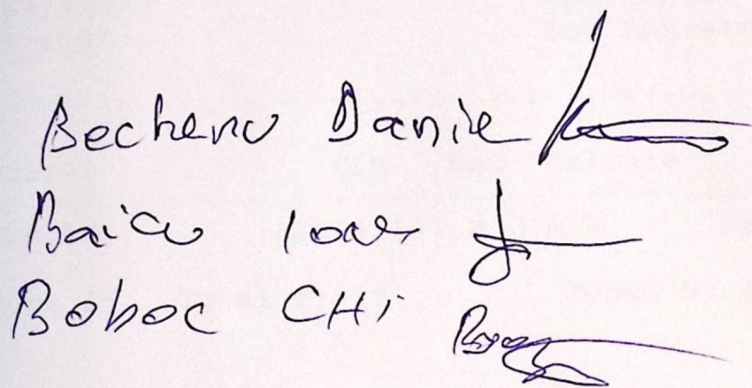 Becheru Daniel
Baicu Ioan
Boboc CHi